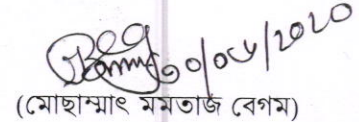 ১০/০৬/২০২০
((মোছাম্মাৎ মমতাজ বেগম)